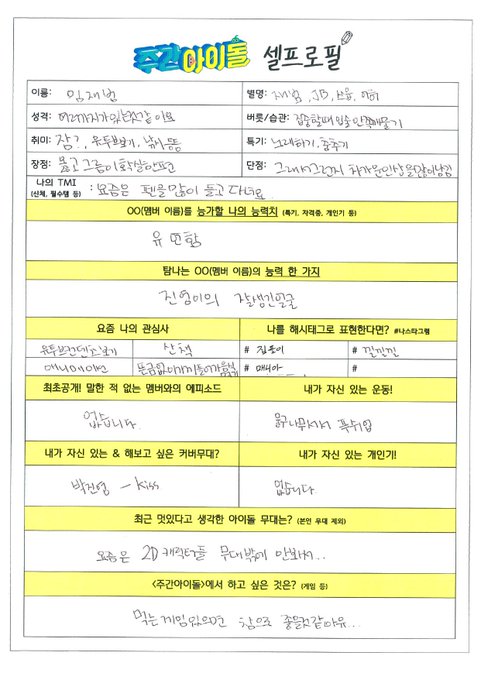 주간아이돌 셀프로필
이름: 임재범
별명: 재범, JB,
성격: 여러가지가있는것같아요
버릇/습관: 집중할때입술안쪽깨물기
취미: 잠?, 유투브보기, 낚시 등
특기: 노래하기, 춤추기
장점: 맺고 끊음이확실한편
단점: 그래서그런지 차가운인상을많이남김
나의 TMI
(신체, 필수템 등) : 요즘은 펜을많이 들고 다녀요
OO(멤버 이름)를 능가할 나의 능력치 (특기, 자격증, 개인기 등)
유연함
탐나는 OO(멤버 이름)의 능력 한 가지
진영이의 잘생긴얼굴
요즘 나의 관심사
나를 해시태그로 표현한다면? #나스타그램
유투브컨텐츠보기
산책
# 집돌이
# 낄낄낄
애니메이션
뜬금없이
# 매니아
#
최초공개! 말한 적 없는 멤버와의 에피소드
내가 자신 있는 운동!
없습니다.
물구나무서서 푹쉬업
내가 자신 있는 & 해보고 싶은 커버무대?
내가 자신 있는 개인기!
박진영 - Kiss
없습니다
최근 멋있다고 생각한 아이돌 무대는? (본인 무대 제외)
요즘은 2D 캐릭터들 무대밖에 안봐서..
<주간아이돌>에서 하고 싶은 것은? (게임 등)
먹는게임있으면 참으로 좋을것같아유..